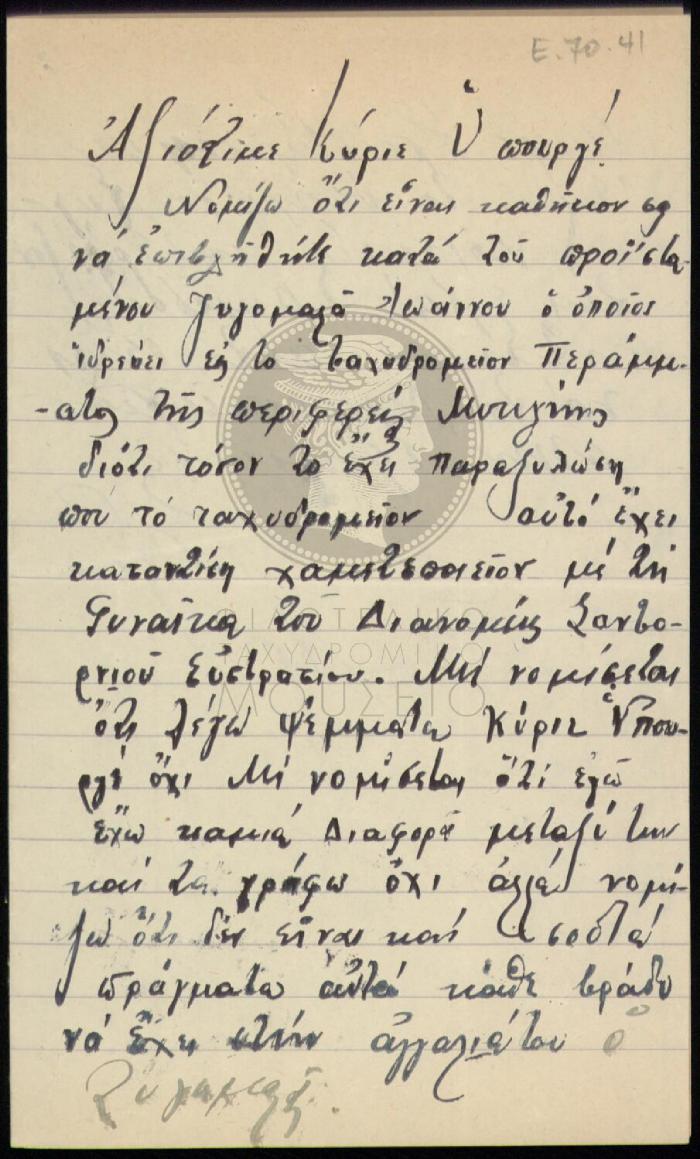 Ε.70.41
Ἀξιότιμε Κύριε Ὑπουργέ
Νομίζω ὅτι εἶναι καθῆκον σας
νά ἐπιβληθῆτε κατά τοῦ προϊστα-
μένου Ζυγομαλᾶ Ἰωάννου ὁ ὁποῖος
ἱδρεύει εἰς το ταχυδρομεῖον Περάμμ-
-ατος τῆς περιφερείς Μυτιλήνης
διότι τόσον το ἔχει παραξυλώση
που τό ταχυδρομεῖον αὐτό ἔχει
καταντίση χαμετεπαιεῖον μέ τή
Γυναῖκα τοῦ Διανομέως Σαντο-
ρνιοῦ Εὐστρατίου. Μή νομίσεται
ὅτι λέγω ψέμματα Κύριε Ὑπου-
ργέ ὄχι Μή νομίσεται ὅτι ἐγώ
ἔχω καμιά Διαφορά μεταξύ των
καί τα γράφω ὄχι ἀλλά νομί-
ζω ὅτι δέν εἶναι καί σοστά
πράγματα αὐτά κάθε βράδυ
νά ἔχει στήν ἀγγαλιά του ὁ
Ζυγομαλᾶς.
ΦΙΛΟΤΕΛΙΚΟ
ΤΑΧΥΔΡΟΜΙΚΟ
ΜΟΥΣΕΙΟ